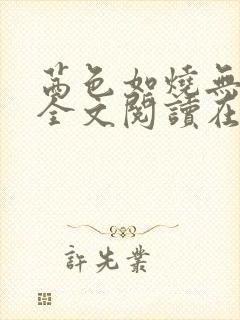 茜色如燒無
全文閱讀在
許先業